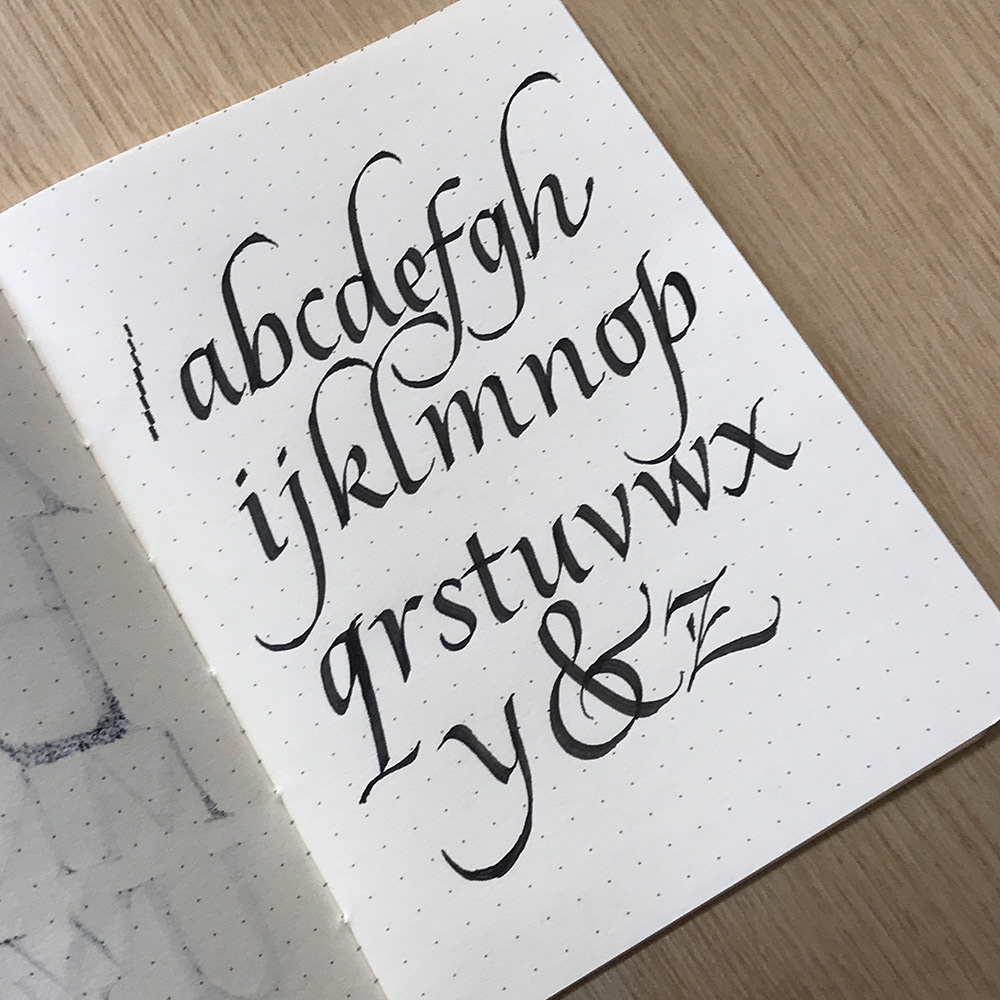 abcdefgh
ijklmnop
qrstuvwx
y&z